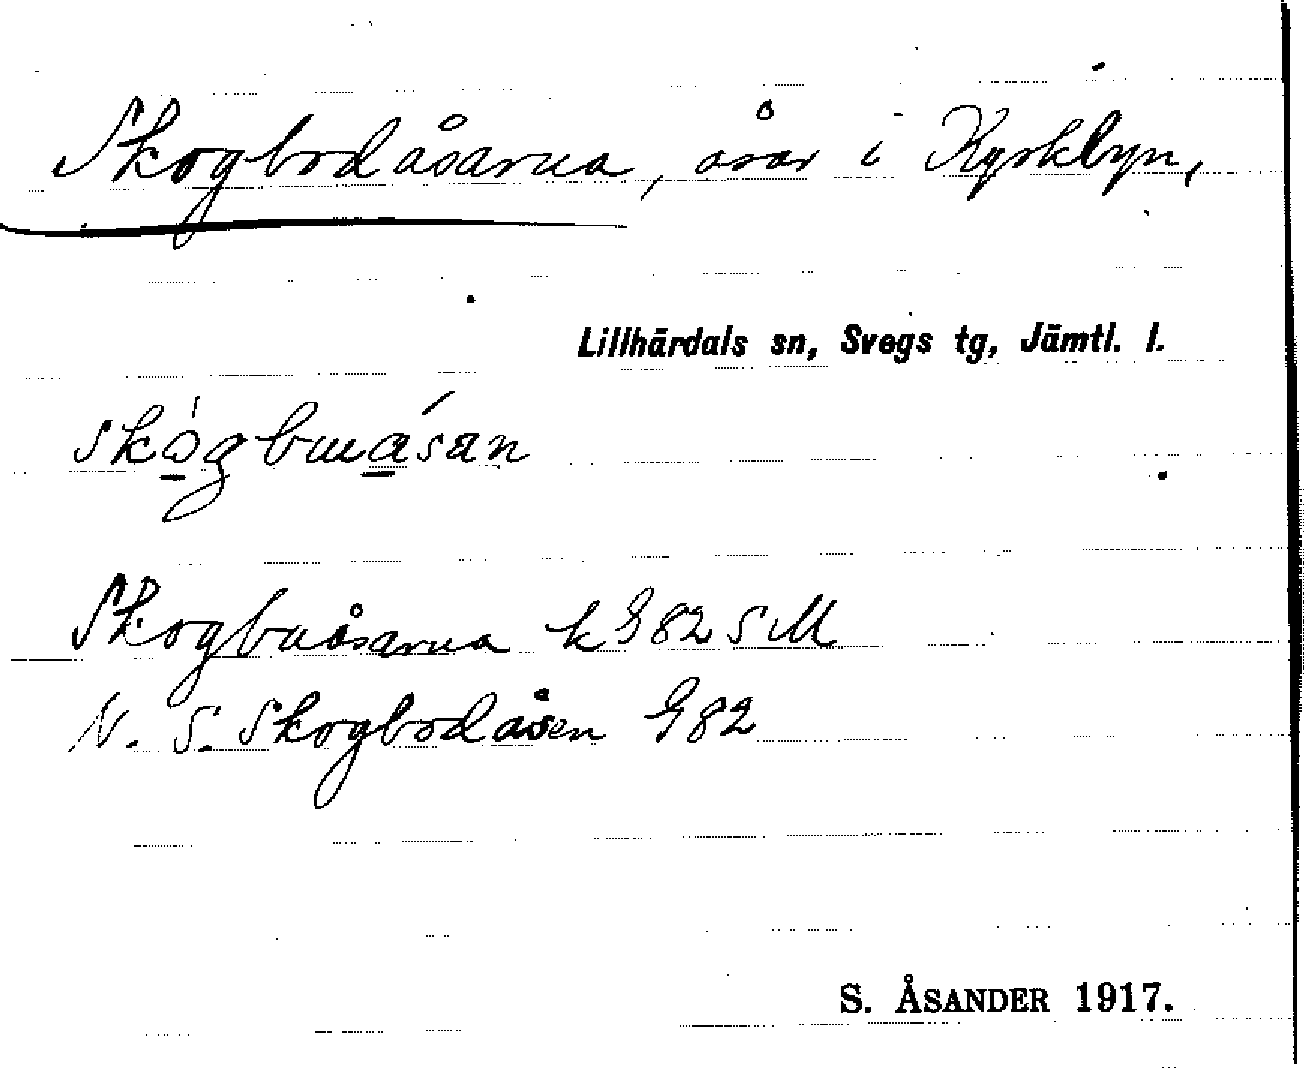 Skogbodåsarna, åsar i Kyrkbyn,
Lillhärdals sn, Svegs tg, Jämtl. l.
skògbuásan
Skogbuåsarna k G82 S M
N. S. Skogbodåsen G82
S. ÅSANDER 1917.